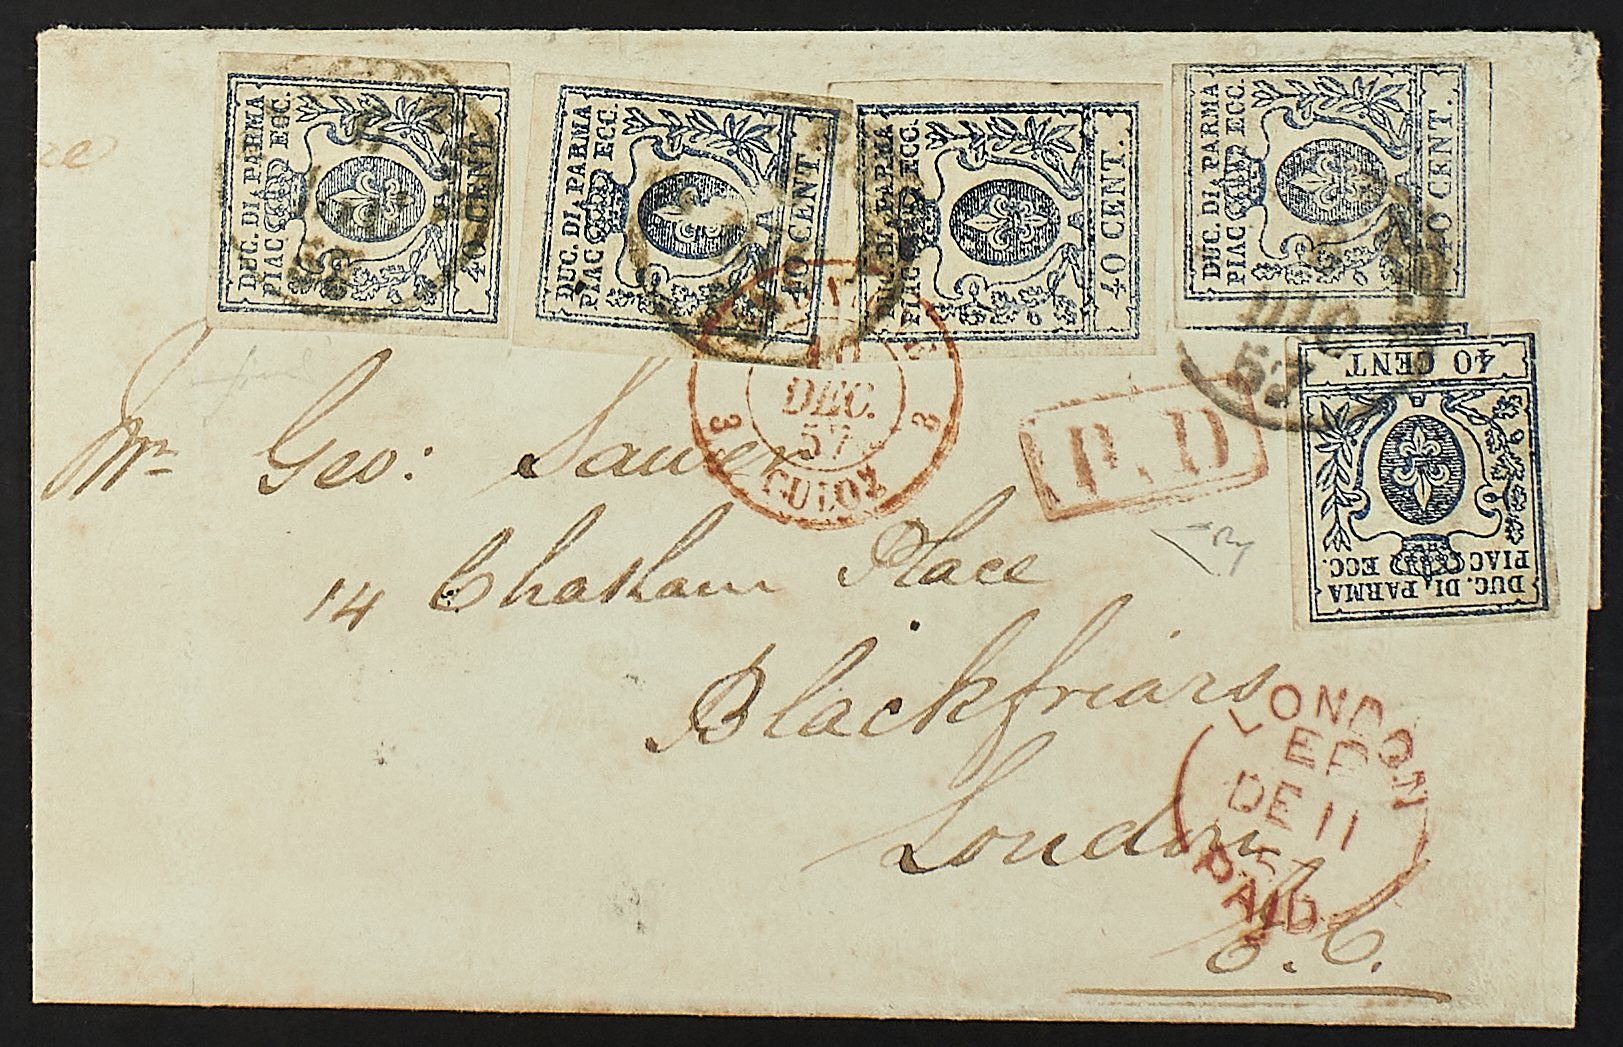 DUC. DI PARMA
PIAC ECC.
40 CENT.
DUC. DI PARMA
PIAC ECC.
40 CENT.
DUC. DI PARMA
PIAC ECC.
40 CENT.
DUC. DI PARMA
PIAC ECC.
40 CENT.
DIC
57
40 CENT
DUC. DI PARMA
PIAC ECC.
10
DEC.
57
3 3
CULOZ
P.D
Mr Geo: Sawer
14 Chatham Place
Blackfriars
London
E.C.
LONDON
EP
DE 11
57
PAID